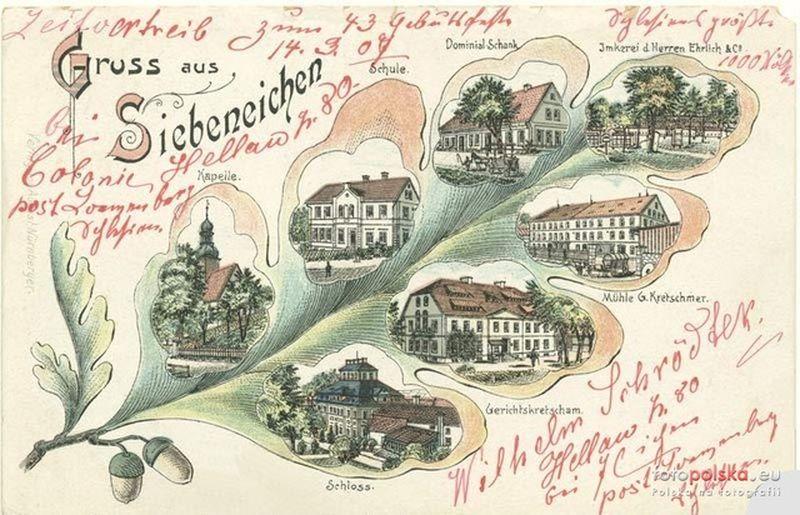 Zeitvertreib zum 43 Geburtsfeste
14. 3. 07
Schlesiens größte
1000 Völk
Gruss aus
Siebeneichen
Schule.
Dominial-Schank.
Imkerei d. Herren Ehrlich & Co.
bei
Colonie Hellau Nr. 80.
post
Schlesien
Kapelle.
Nürnberger.
Mühle G. Kretschmer.
Gerichtskretscham.
Schloss.
Wilhelm Schrödter.
Hellau Nr 80
bei 7Eichen
post
fotopolska.eu
Polska na fotografii